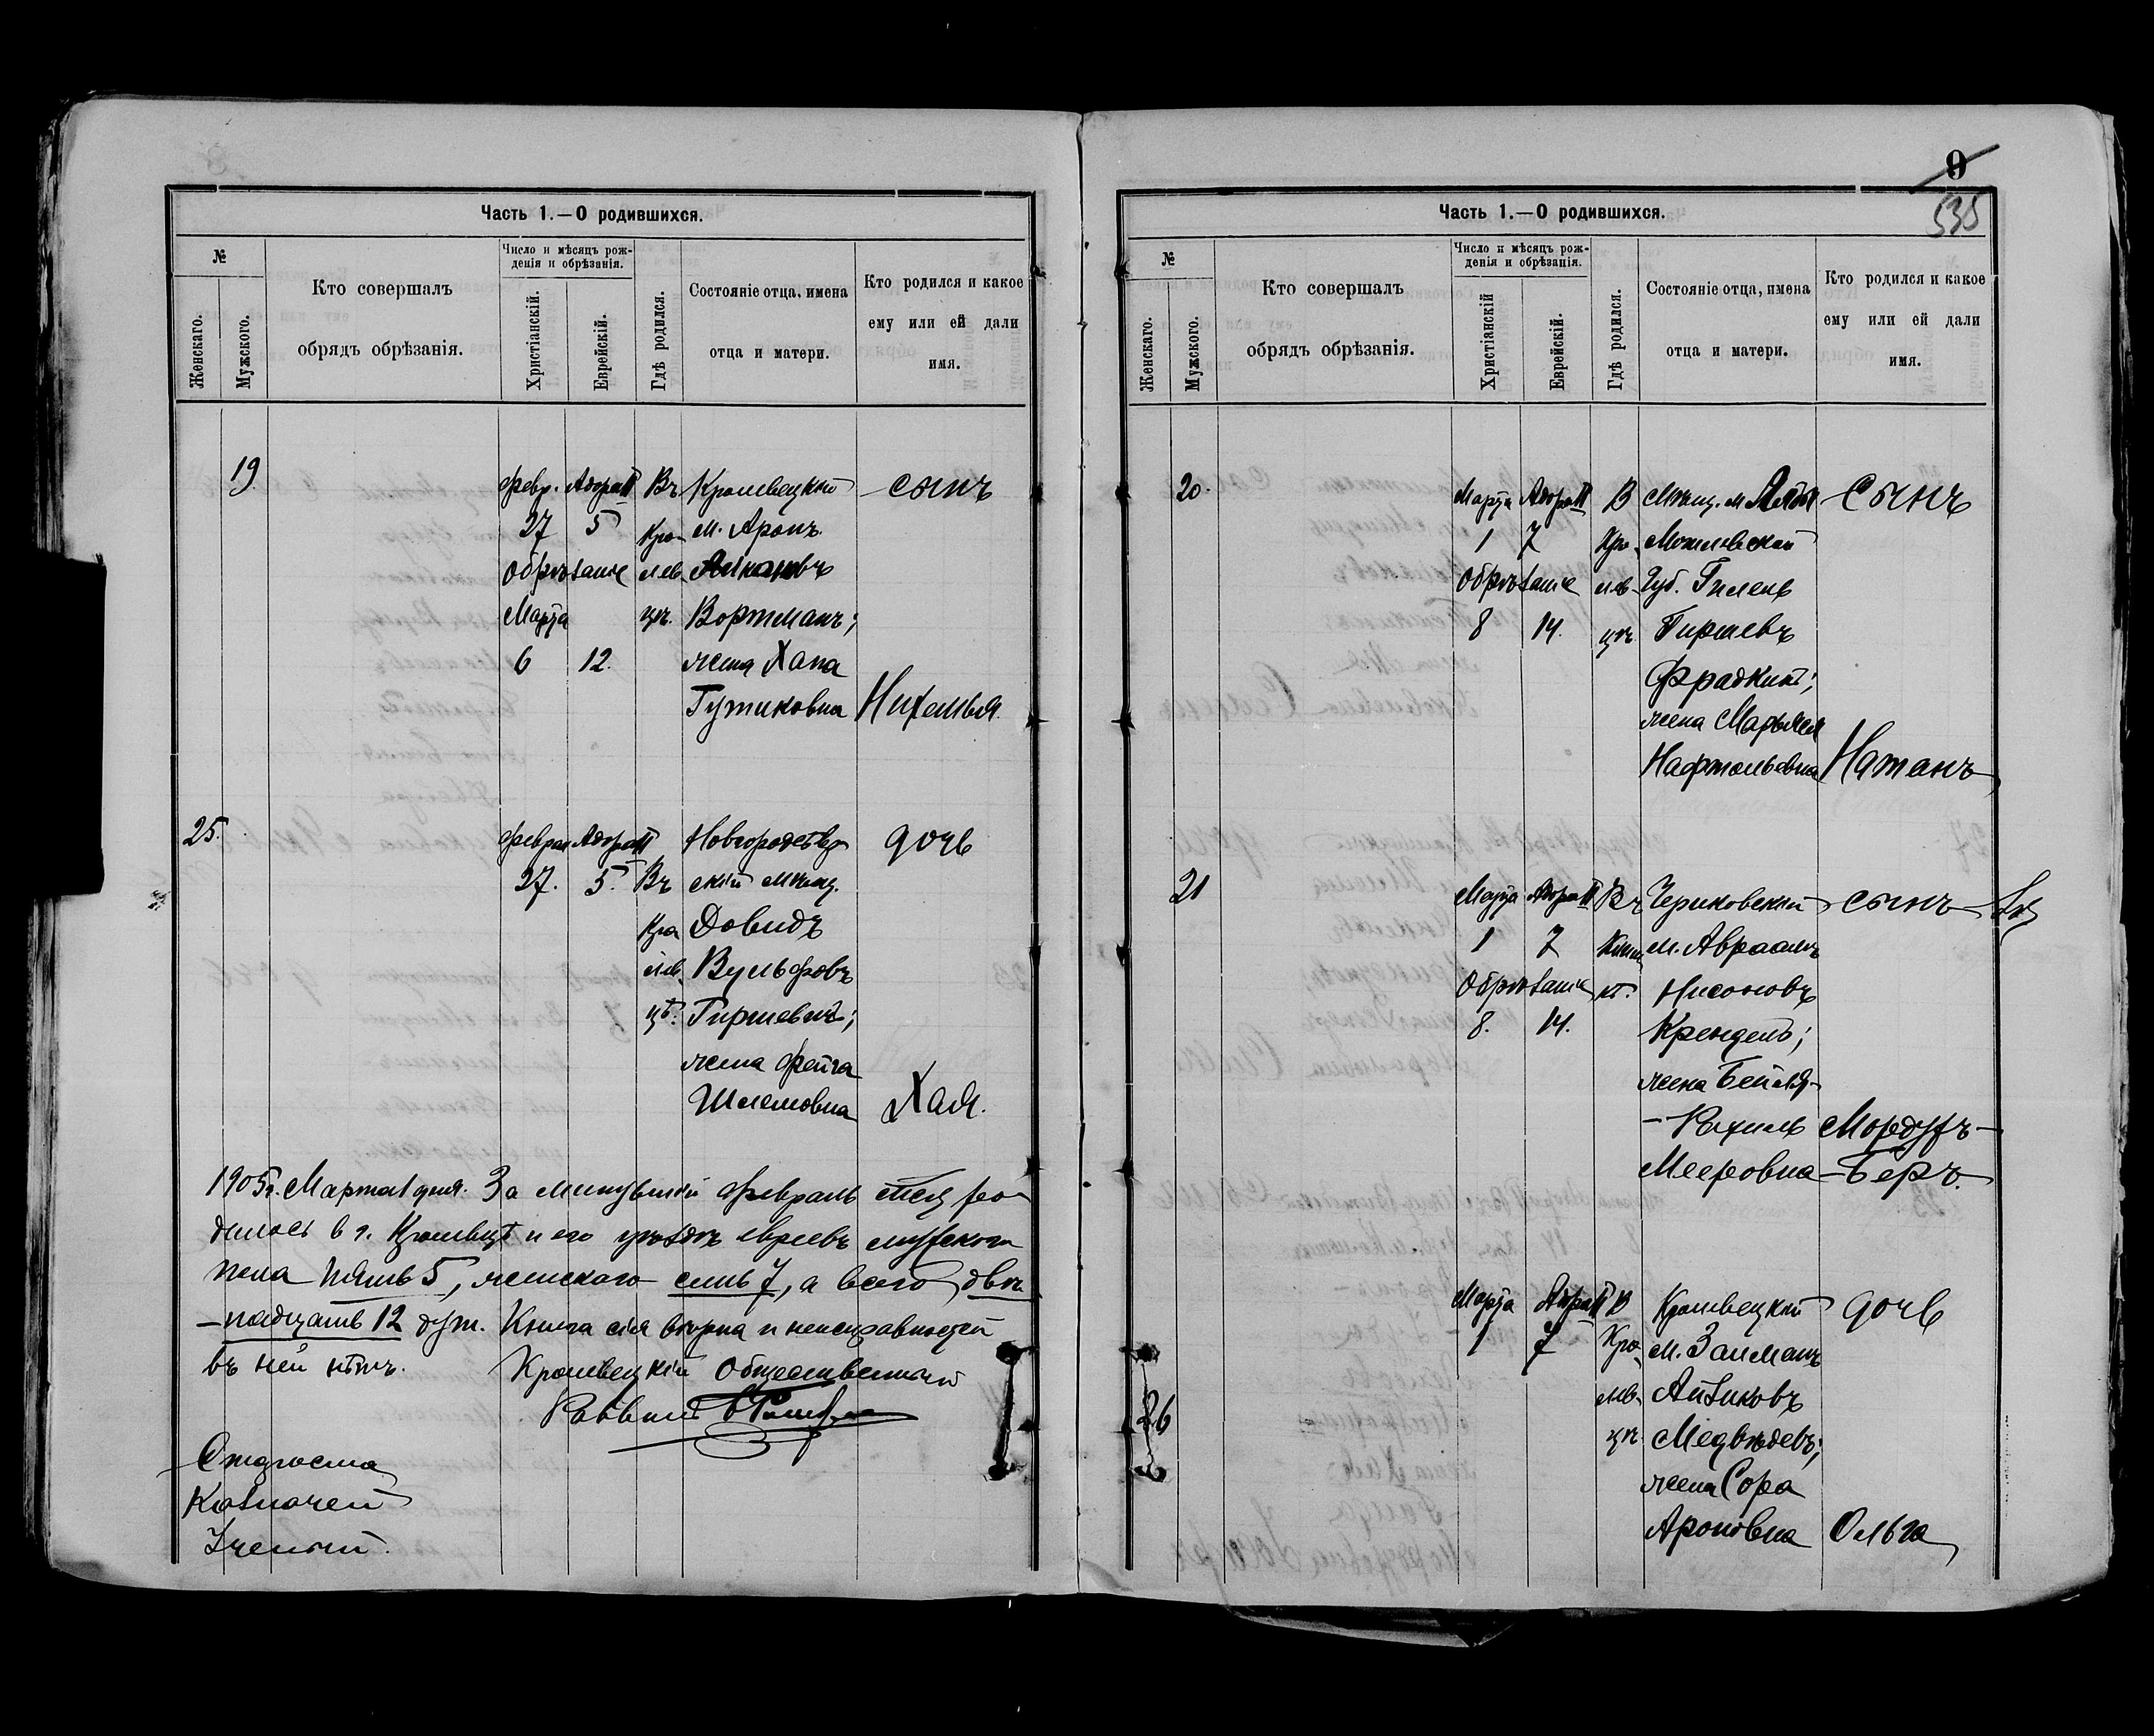 Часть 1.—О родившихся.
№
Женскаго.
Мужского.
Кто совершалъ
обрядъ обрѣзанія.
Число и мѣсяцъ рож-
денія и обрѣзанія.
Христіанскій.
Еврейскій.
Гдѣ родился.
Состояніе отца, имена
отца и матери.
Кто родился и какое
ему или ей дали
имя.
19.
Февр. Адора II Въ Кролевецкій сынъ
27 5 Кро- м. Аронъ
Обрѣзаніе лев
Марта цѣ. Вортманъ;
6 12. жена Хана
Гутиковна
25. Феврал Адора II Новгородсѣвер- дочь
27. 5. Въ скій мѣщ.
Кро Довидъ
лев. Вульфовъ
цѣ. Гиршевичъ;
жена Фейга
Шлемовна Хая.
1905 г. Марта 1 дня. За минувшій Февраль мсц ро-
дилось в г. Кролевцѣ и его уѣздѣ евреевъ мужского
пола пять 5, женскаго семь 7, а всего двѣ-
надцать 12 душ. Книга сія вѣрна и неисправностей
въ ней нѣтъ. Кролевецкій Общественный
Раввинъ
Староста
Казначей
Ученый.
9
535
Часть 1.—О родившихся.
№
Женскаго.
Мужского.
Кто совершалъ
обрядъ обрѣзанія.
Число и мѣсяцъ рож-
денія и обрѣзанія.
Христіанскій
Еврейскій.
Гдѣ родился.
Состояніе отца, имена
отца и матери.
Кто родился и какое
ему или ей дали
имя.
20. Марта Адора II В Мѣщ. м. Сынъ
1 7 Кро- Могилевской
Обрѣзаніе лев- Губ.
8 14. цѣ Гиршевъ
Фрадкинъ;
жена Марьяся
Нафтольевна Натанъ
21 Марта Адора II Въ Чериковскій сынъ
1 7 м. Авраамъ
Обрѣзаніе Нисоновъ
8. 14. Крендель;
жена Бейля-
-Рахиль Мордухъ-
Мееровна -Беръ.
Марта Адора II В Кролевецкій дочь
1 7 Кро- м. Залманъ
лев- Айзиковъ
26 цѣ Медвѣдевъ;
жена Сора
Ароновна Ольга